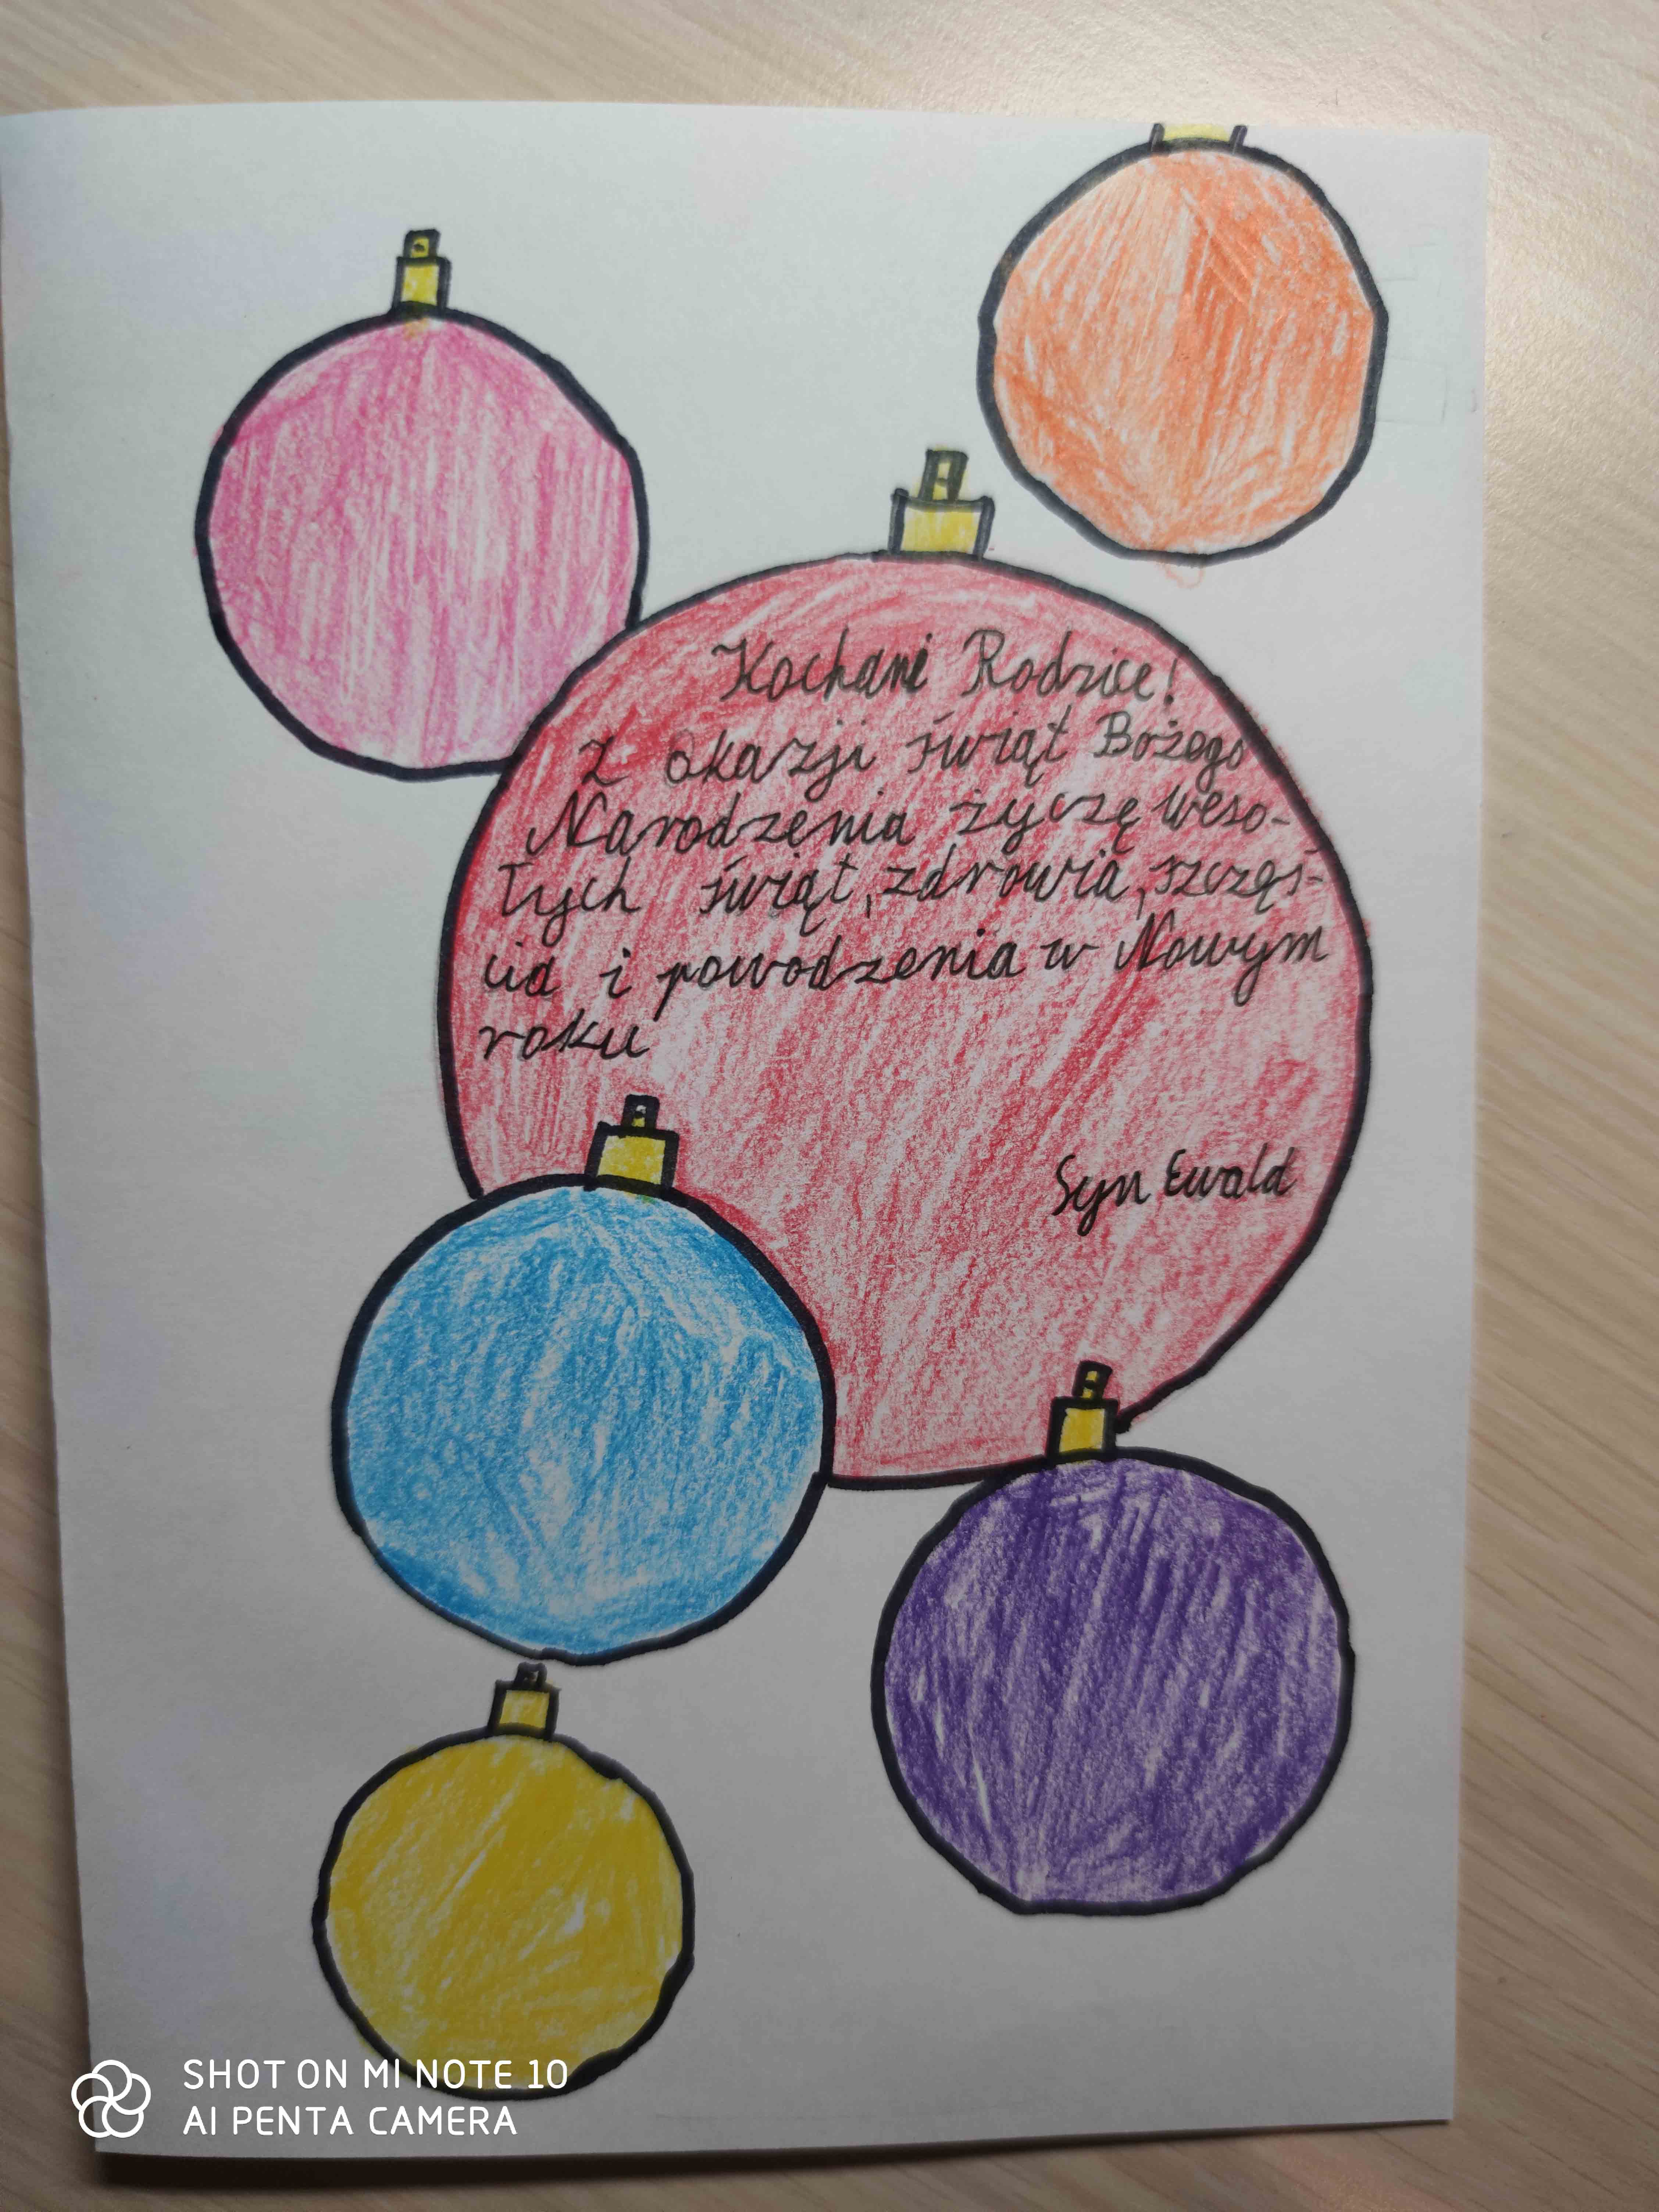 Kochani Rodzice!
Z okazji świąt Bożego
Narodzenia życzę weso-
łych świąt, zdrowia, szczęś-
cia i powodzenia w Nowym
roku
Syn Ewald
SHOT ON MI NOTE 10
AI PENTA CAMERA